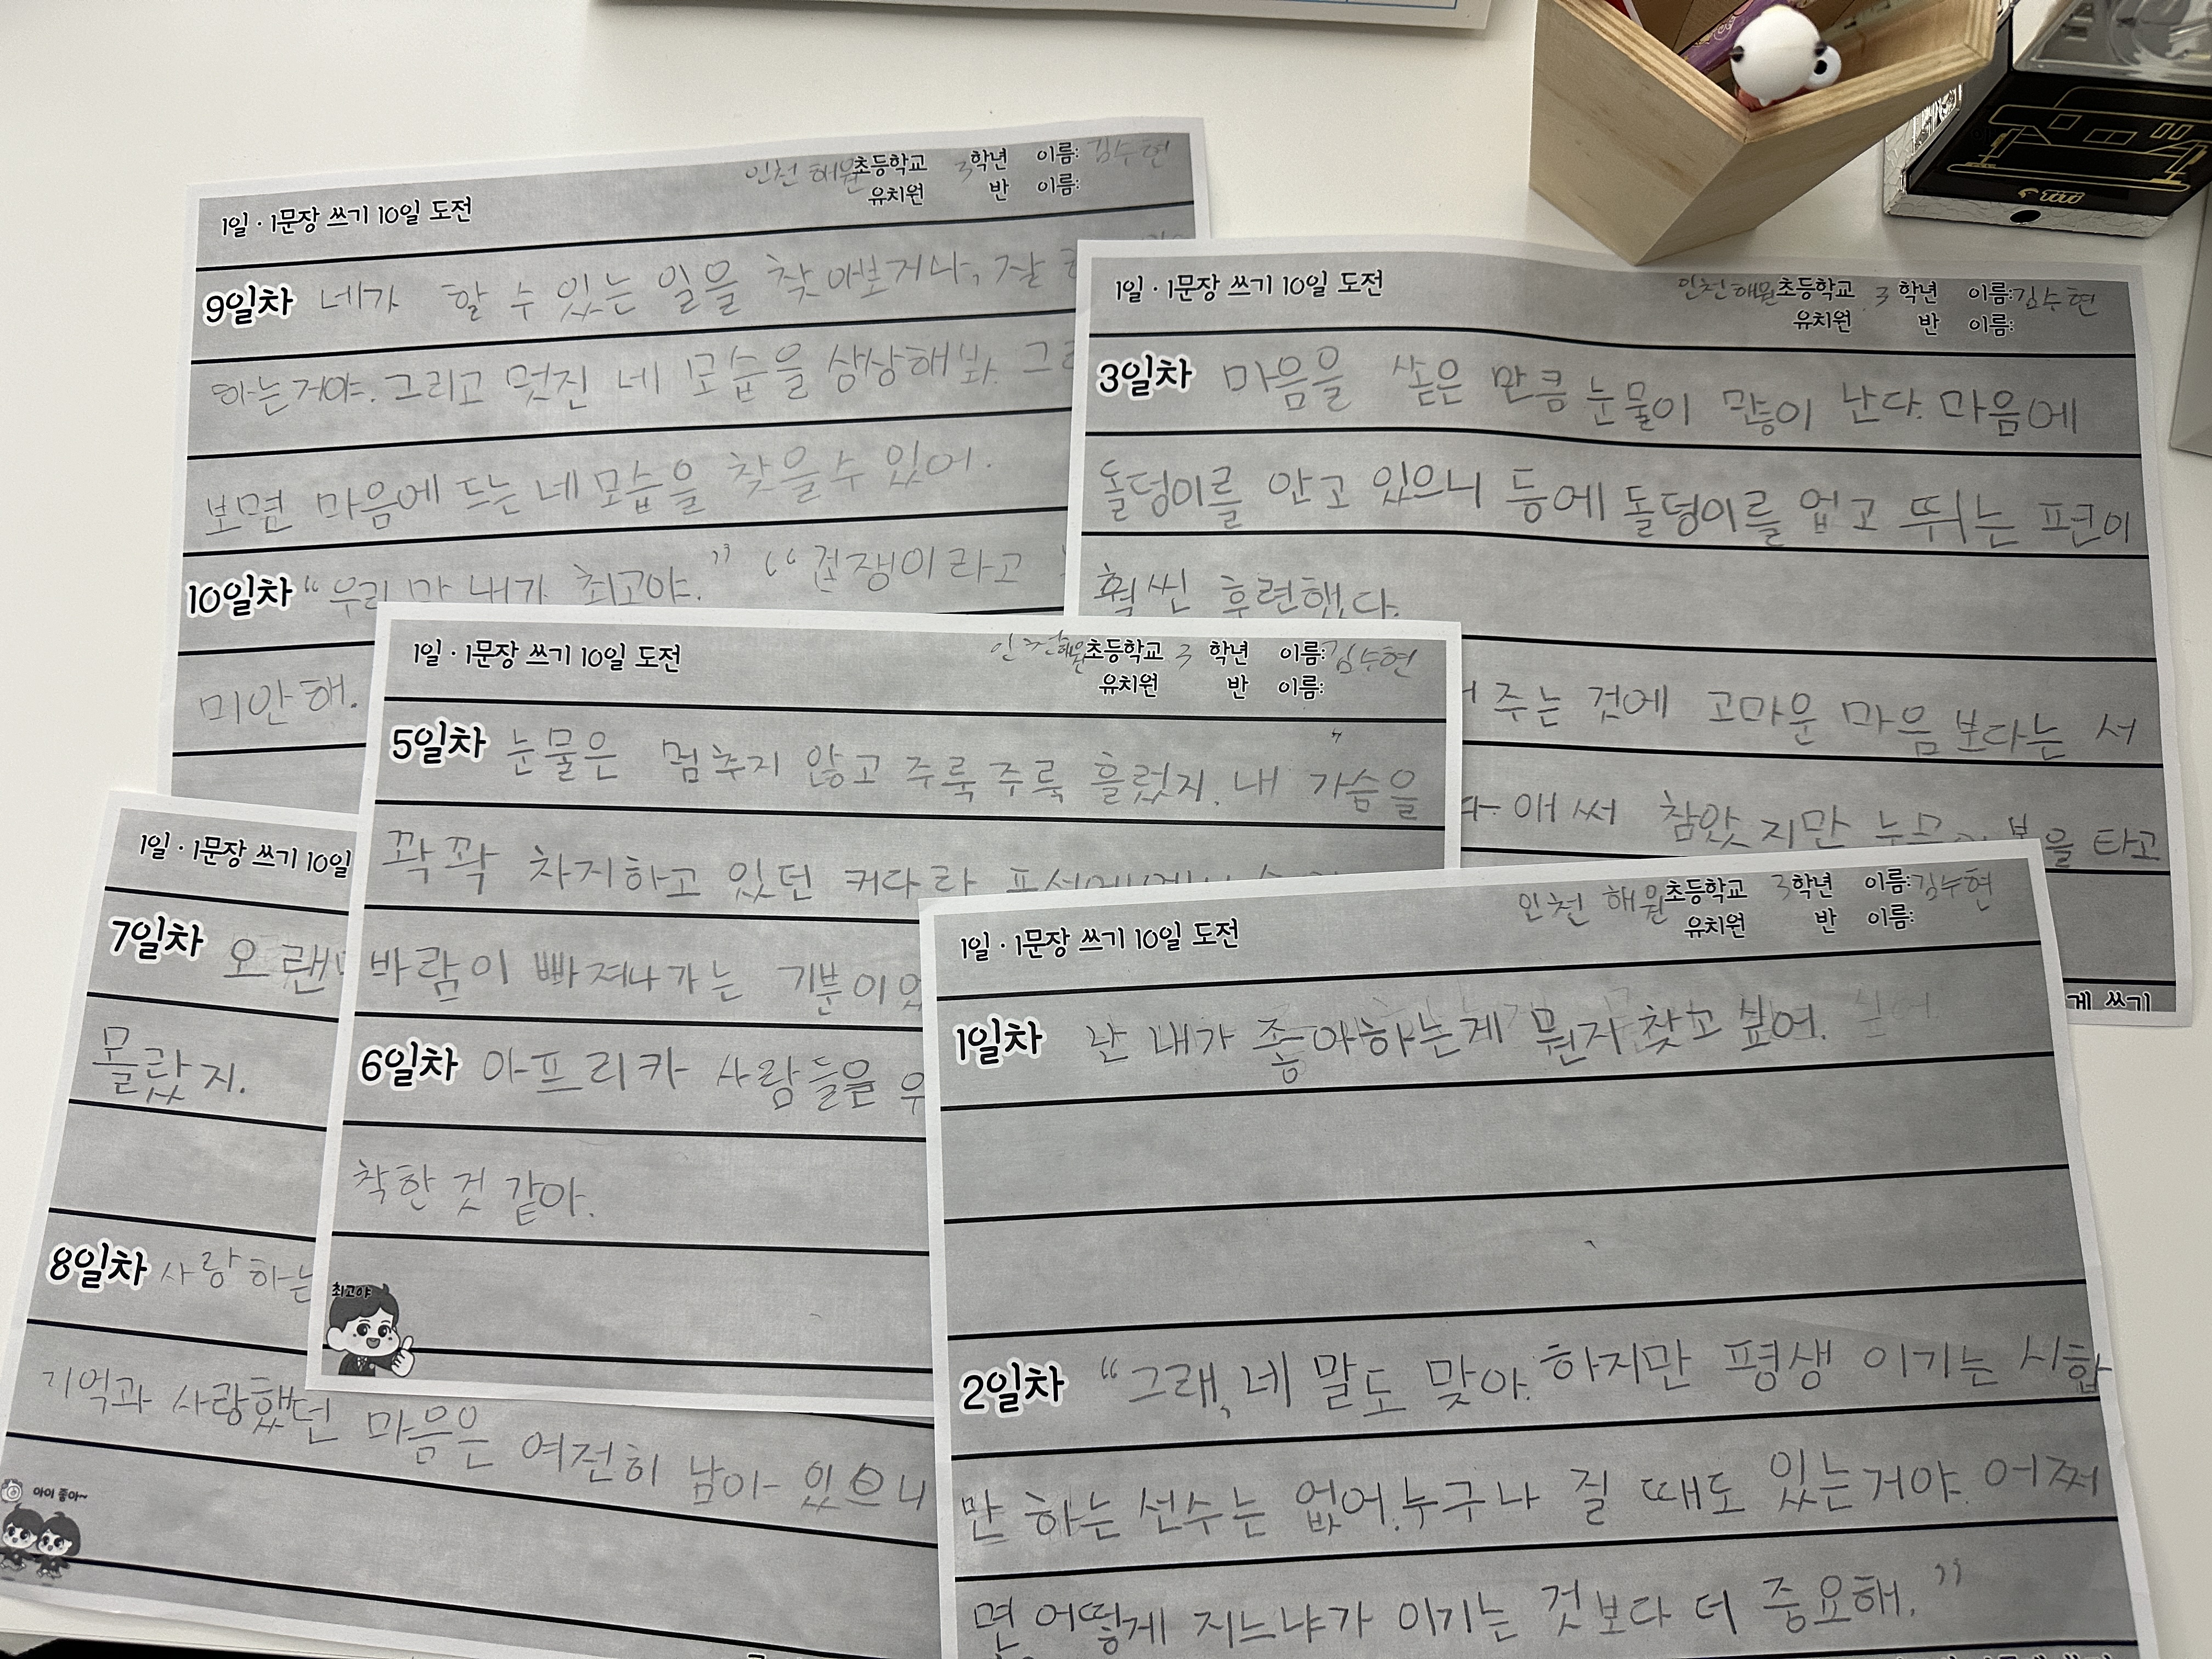 1일·1문장 쓰기 10일 도전
인천 해원초등학교 3학년 이름: 김수현
유치원 반 이름:
9일차 네가 할 수 있는 일을 찾아보거나, 잘
하는거야. 그리고 멋진 네 모습을 상상해봐. 그
보면 마음에 드는 네 모습을 찾을수 있어.
10일차 “우리 내가 최고야.” “겁쟁이라고
미안해.
1일·1문장 쓰기 10일 도전
인천해원초등학교 3 학년 이름: 김수현
유치원 반 이름:
3일차 마음을 쏟은 만큼 눈물이 많이 난다. 마음에
돌덩이를 안고 있으니 등에 돌덩이를 업고 뛰는 편이
훨씬 후련했다.
주는 것에 고마운 마음 보다는 서
애써 참았지만 을 타고
게 쓰기
1일·1문장 쓰기 10일 도전
인천해원초등학교 3 학년 이름: 김수현
유치원 반 이름:
5일차 눈물은 멈추지 않고 주룩주룩 흘렀지. 내 가슴을
꽉꽉 차지하고 있던 커다란
바람이 빠져나가는 기분이었
6일차 아프리카 사람들은
착한 것 같아.
최고야
1일·1문장 쓰기 10일
7일차 오랜
몰랐지.
8일차 사랑하는
기억과 사랑했던 마음은 여전히 남아 있으니
아이 좋아~
1일·1문장 쓰기 10일 도전
인천 해원초등학교 3학년 이름: 김수현
유치원 반 이름:
1일차 난 내가 좋아하는게 뭔지 찾고 싶어.
2일차 “그래, 네 말도 맞아. 하지만 평생 이기는 시합
만 하는 선수는 없어. 누구나 질 때도 있는거야. 어쩌
면 어떻게 지느냐가 이기는 것보다 더 중요해.”